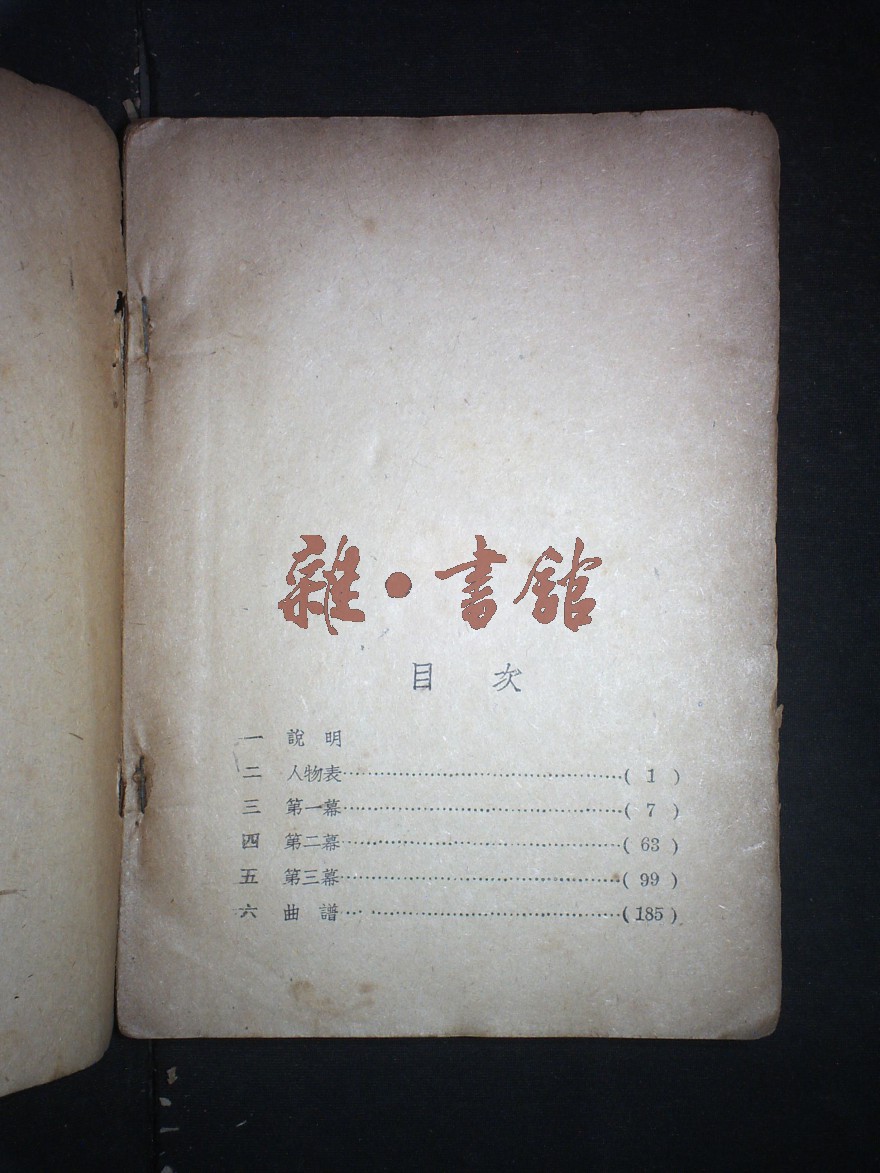 雜·書舘
目 次
一 說 明
二 人物表……………………………………( 1 )
三 第一幕……………………………………( 7 )
四 第二幕……………………………………( 63 )
五 第三幕……………………………………( 99 )
六 曲 譜……………………………………( 185 )